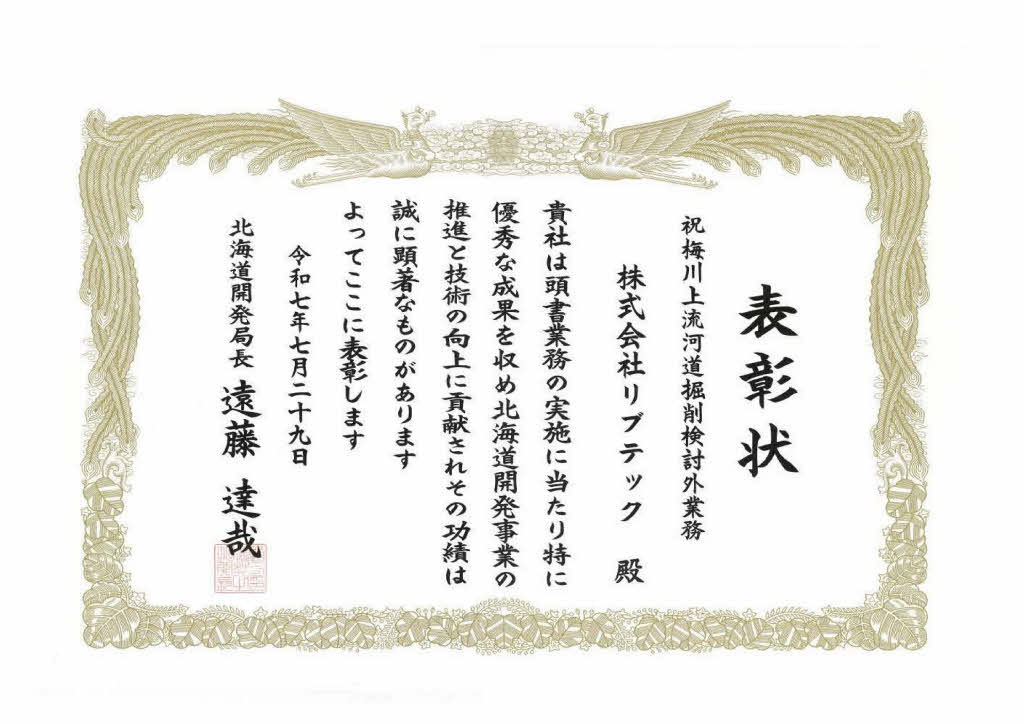 表彰状
祝梅川上流河道掘削検討外業務
株式会社リブテック 殿
貴社は頭書業務の実施に当たり特に
優秀な成果を収め北海道開発事業の
推進と技術の向上に貢献されその功績は
誠に顕著なものがあります
よってここに表彰します
令和七年七月二十九日
北海道開発局長 遠藤 達哉